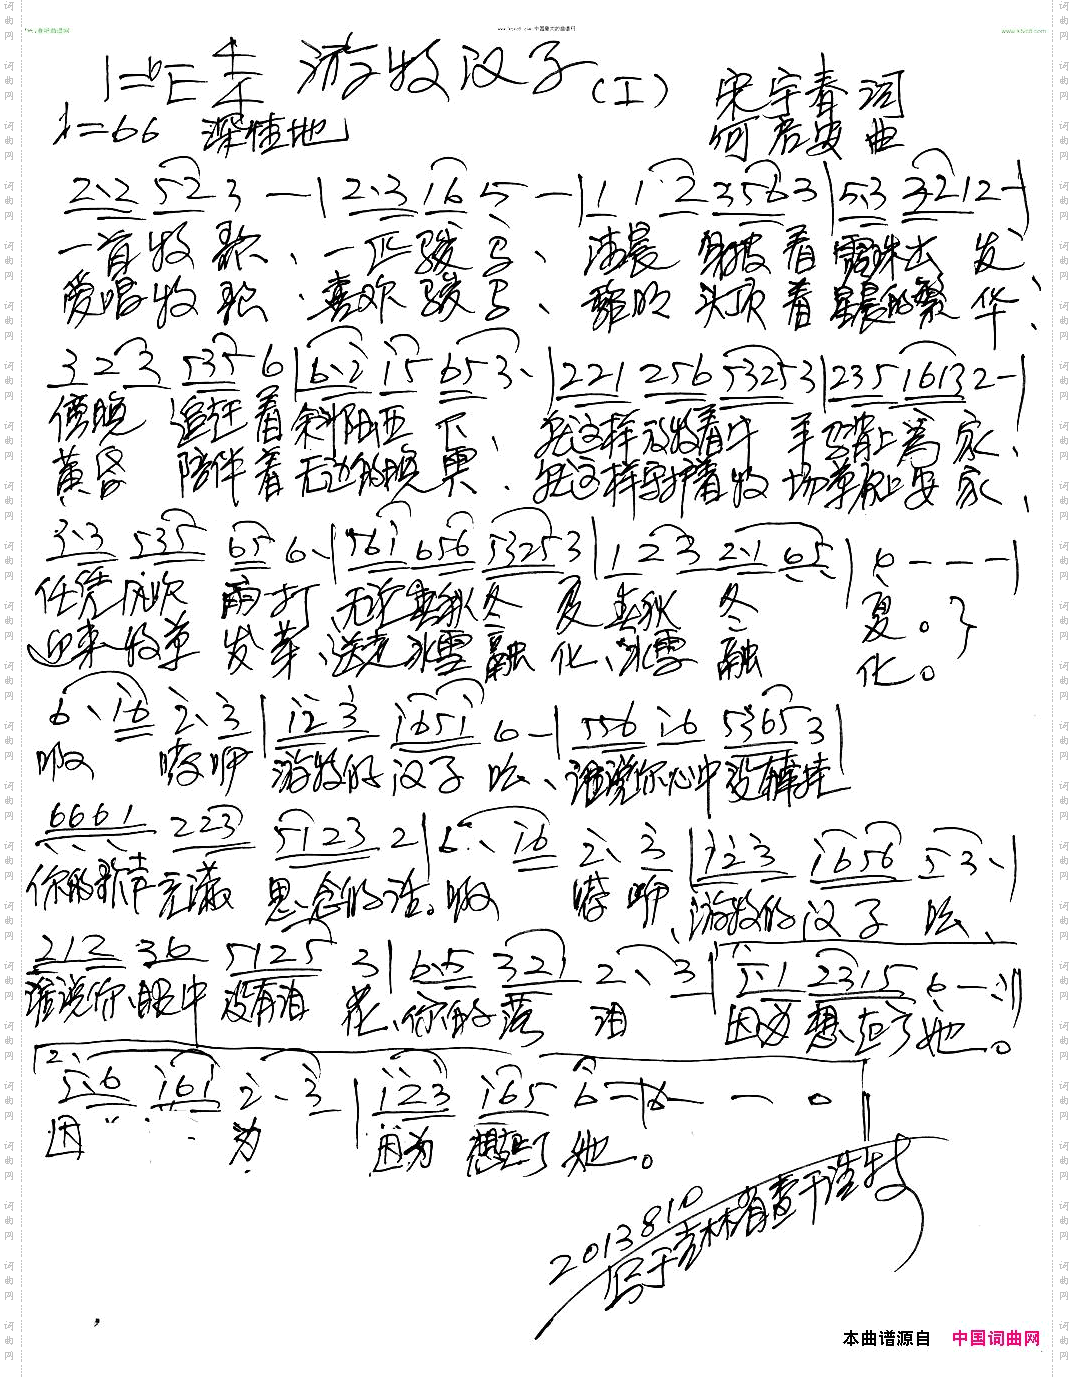 1=bE 4/4 游牧汉子(I) 宋宇春 词
♩=66 深情地 何启安 曲
2·2 52 3 —|2·3 16 5 —|1 1·2 3563|5·3 3212—|
一首牧歌、一匹骏马、清晨身披着露珠出发、
爱唱牧歌、喜欢骏马、黎明头顶着星晨的繁华、
3 2 3 535 6|6·2 15 653·|221 256 53253|235 16132—|
傍晚 追赶着斜阳西下、我这样放牧着牛羊马背上为家、
黄昏 陪伴着无边的晚霞、我这样守护着牧场草原上安家、
3·3 535 65 6·|561 656 53253|1 2 3 2·1 65|6 - - -|
任凭风吹 雨打、无论春秋冬夏春秋 冬 夏。
迎来牧草 发芽、送走冰雪融化、冰雪 融 化。
6· 16 2·3|123 1651 6—|556 16 53653|
啊 嗬咿 游牧的汉子吆、谁说你心中没有牵挂
6661 223 51232|6· 16 2·3|123 1656 53·|
你的歌声充满 思念的话。啊 嗬咿、游牧的汉子吆、
212 36 5125 3|6·5 321 2·3|5·1 2315 6—:||
谁说你眼中没有泪花、你的落泪 因为想起了她。
2、
5·6 161 2·3|123 165 6—|6— — 0||
因 为 因为 想起了她。
2013810
写于吉林省查干浩特
本曲谱源自 中国词曲网